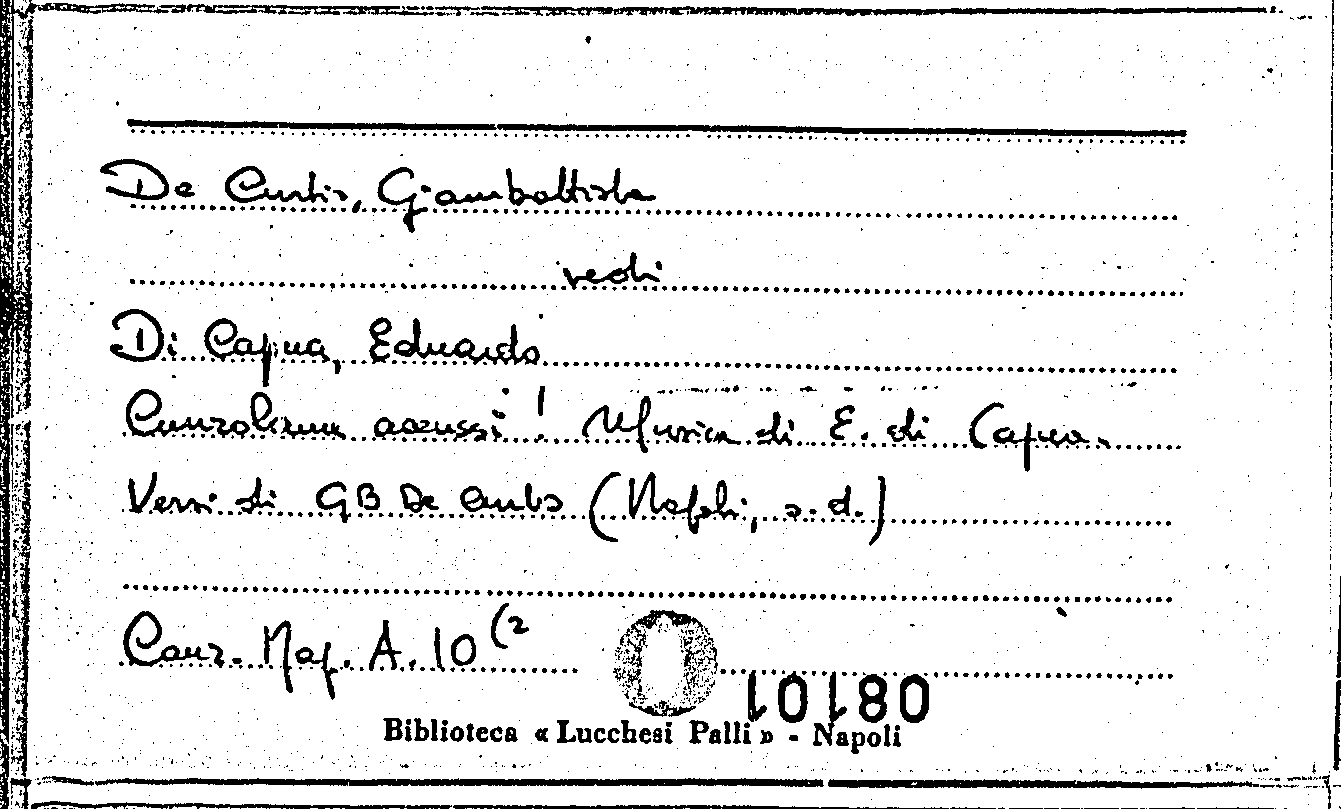 De Curtis, Giambattista
vedi
Di Capua, Eduardo
Cunzolamm accussì! Musica di E. di Capua.
Versi di GB De Curtis (Napoli, s.d.)
Canz. Nap. A. 10 (2
108101
Biblioteca « Lucchesi Palli » - Napoli